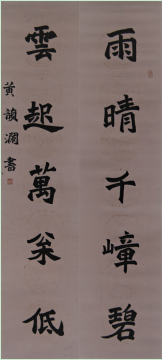 雨晴千嶂碧
雲起萬峯低
黃韻瀾書